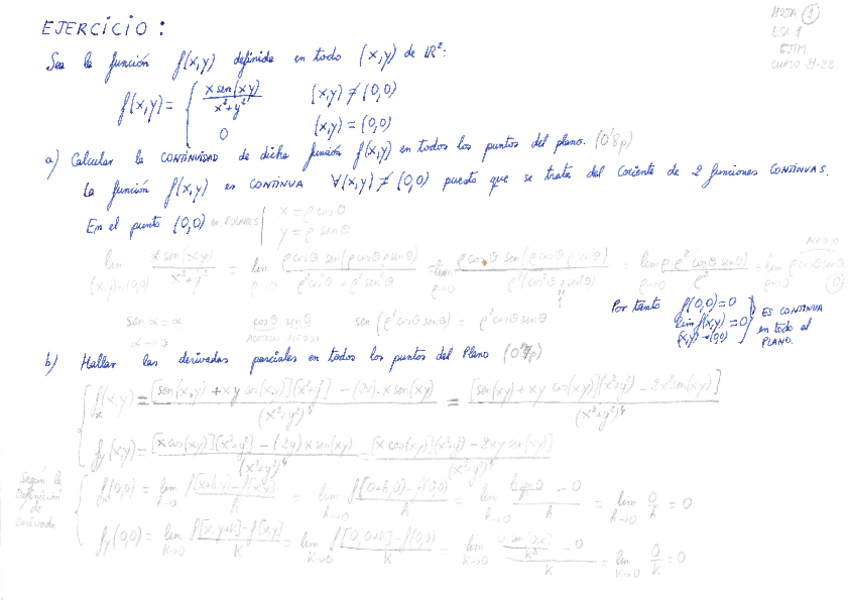 EJERCICIO:
HOJA 1
CURSO 21-22
Sea la función f(x,y) definida en todo (x,y) de ℝ²:
f(x,y) = { x sen(xy) / x²+y²   (x,y) ≠ (0,0)
0   (x,y) = (0,0)
a) Calcular la CONTINUIDAD de dicha función f(x,y) en todos los puntos del plano. (0'8p)
La función f(x,y) es CONTINUA ∀(x,y) ≠ (0,0) puesto que se trata del cociente de 2 funciones CONTINUAS.
En el punto (0,0) en POLARES { x = ρ cosθ
y = ρ senθ
lim (x,y)→(0,0) x sen(xy) / x²+y² = lim ρ→0 ρcosθ sen(ρcosθ ρsenθ) / ρ²cos²θ + ρ²sen²θ = lim ρ→0 ρcosθ sen(ρcosθ ρsenθ) / ρ²(cos²θ+sen²θ) = lim ρ→0 ρ·ρ²cos²θ senθ / ρ² = lim ρ→0
ACOTADO
Por tanto f(0,0) = 0
lim f(x,y) = 0
(x,y)→(0,0)
ES CONTINUA
en todo el
PLANO.
sen α = α
α→0
cosθ senθ
ACOTADO ACOTADO
sen(ρ²cosθ senθ) = ρ²cosθ senθ
b) Hallar las derivadas parciales en todos los puntos del Plano
fx(x,y) = [sen(x,y) + xy cos(xy)][x²+y²] − (2x)·x sen(xy) / (x²+y²)² = [sen(xy) + xy cos(xy)](x²+y²) − 2x² sen(xy)] / (x²+y²)²
fy(x,y) = [x cos(xy)](x²+y²) − (2y) x sen(xy) / (x²+y²)² = [x cos(xy)](x²+y²) − 2xy sen(xy)] / (x²+y²)²
Según la
Definición
de
Derivada
fx(0,0) = lim h→0 f[x+h,y] − f(x,y) / h = lim h→0 f(0+h,0) − f(0,0) / h = lim h→0 − 0 / h = lim h→0 0/h = 0
fy(0,0) = lim k→0 f[x,y+k] − f[x,y] / k = lim k→0 f[0,0+k] − f(0,0) / k = lim k→0 − 0 / k = lim k→0 0/k = 0